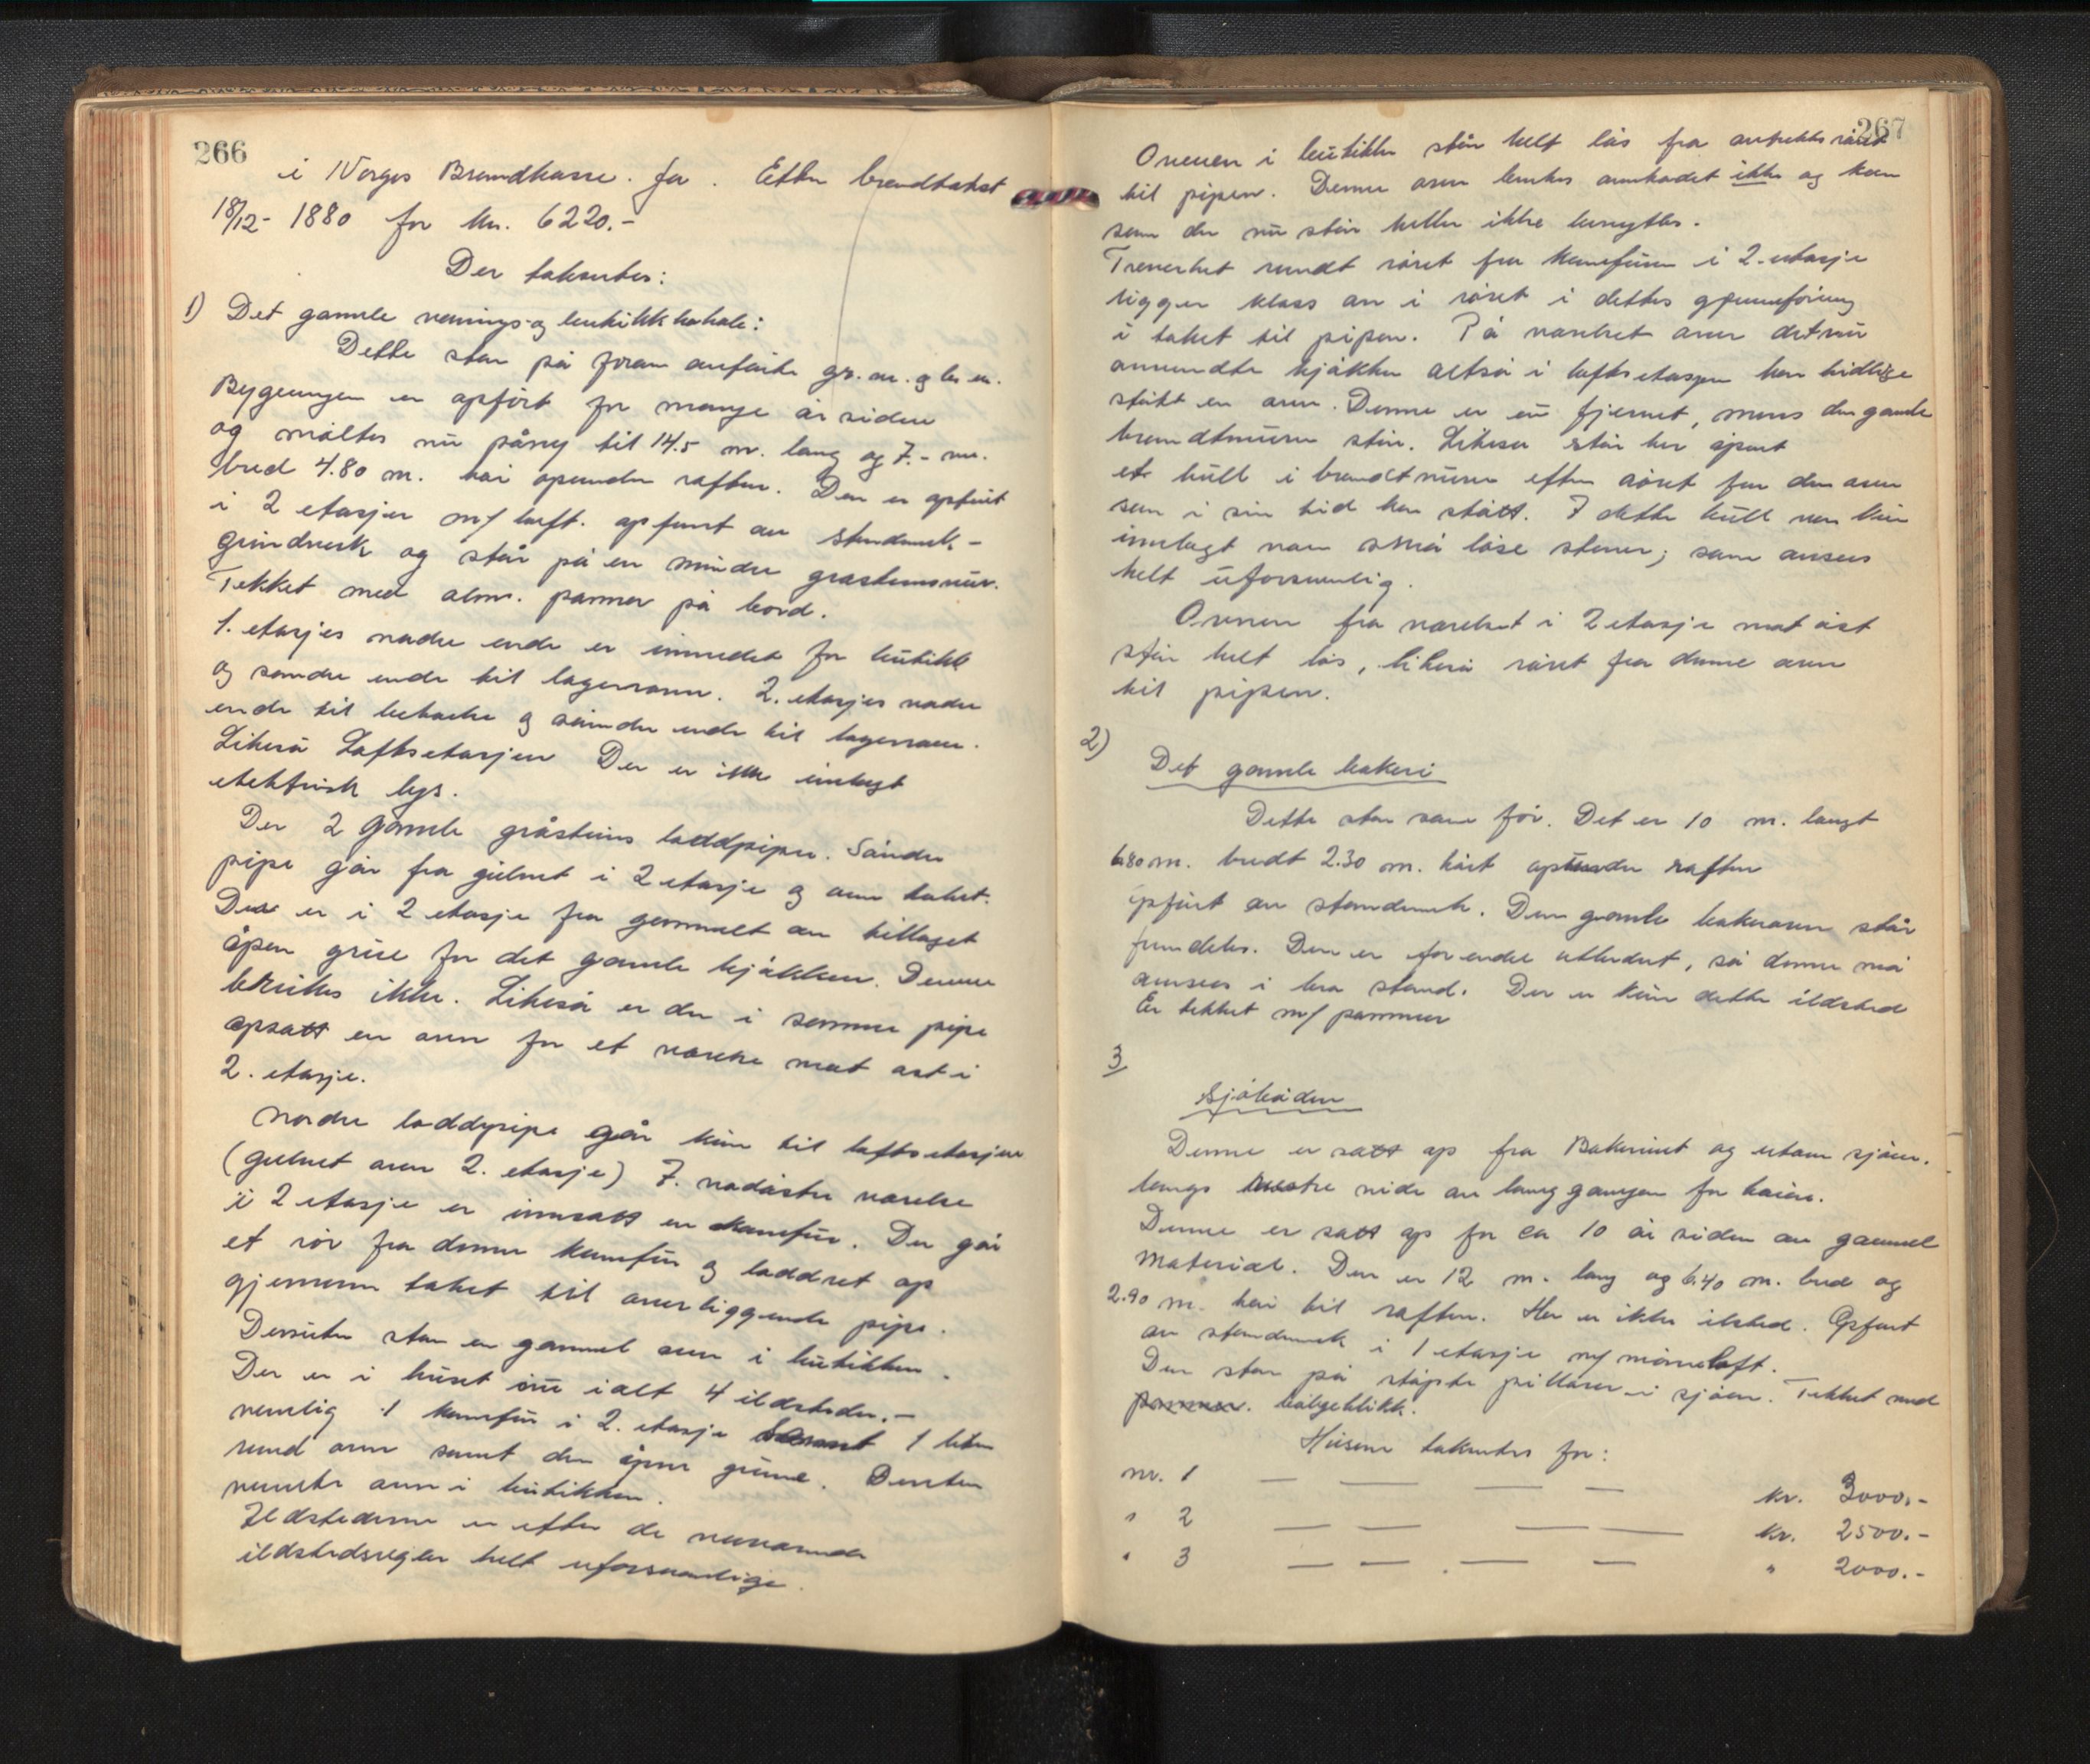 266
i Norges Brandkasse. for. Etter brandtakst
18/12- 1880 for kr. 6220.-
Der taksertes:
1) Det gamle vånings-og butikklokale:
Dette står på foran anførte gr. nr. g br. nr.
Bygningen er opført for mange år siden
og måltes nu påny til 14.5 m. lang og 7.- m.
bred 4.80 m. høi opunder raften. Den er opført
i 2 etasjer m/ loft. opført av stenderverk-
grindverk og står på en mindre gråstensmur.
Tekket med alm. panner på bord.
1. etasjes nordre ende er innredet for butikk
og søndre ende til lagerrom. 2. etasjes nordre
ende til beboelse og søndre ende til lagerrom.
Likeså Loftsetasjen Der er ikke innlagt
elektrisk lys.
Der 2 gamle gråsteins loddpiper. Søndre
pipe går fra gulvet i 2 etasje og over taket.
Der er i 2 etasje fra gammelt av tillaget
åpen grue for det gamle kjøkken. Denne
brukes ikke. Likeså er der i samme pipe
opsatt en ovn for et værelse mot øst i
2. etasje.
Nordre loddpipe går kun til loftsetasjen
(gulvet over 2. etasje) I. nordøstre værelse
i 2 etasje er innsatt en kamfur. Der går
et rør fra denne kamfur og loddret op
gjennem taket til overliggende pipe.
Dessuten står en gammel ovn i butikken.
Der er i huset nu ialt 4 ildsteder.-
nemlig 1 kamfur i 2. etasje 1 liten
rund ovn samt den åpne grue. Dessuten
nevnte ovn i butikken.
Ildstedene er efter de nuværende
ildstedsregler helt uforsvarlige.
267
Ovnen i butikken står helt løs fra avtrekksrøret
til pipen. Denne ovn brukes annkodet ikke og kan
som den nu står heller ikke benyttes.
Treverket rundt røret fra kamfuren i 2. etasje
ligger klass an i røret i dettes gjennemføring
i taket til pipen. På værelset over det nu
anvendte kjøkken altså i loftsetasjen har tidligere
stått en ovn. Denne er nu fjernet, mens den gamle
brandtmuren står. Likeså står her åpent
et hull i brandtmuren efter røret for den ovn
som i sin tid har stått. I dette hull var kun
innlagt noen små løse stener; som ansees
helt uforsvarlig.
Ovnen fra værelset i 2 etasje mot øst
står helt løs, likeså røret fra denne ovn
til pipen.
2)
Det gamle bakeri
Dette står som før. Det er 10 m. langt
6.80 m. bredt 2.30 m. høit opunder raften
opført av stenderverk. Den gamle bakerovn står
fremdeles. Den er for endel utbedret, så denne må
ansees i bra stand. Der er kun dette ildsted
Er tekket m/ panner
3
Sjøboden
Denne er satt op fra Bakerimet og utover sjøen.
langs nordre side av langgangen for kaien.
Denne er satt op for ca 10 år siden av gammel
material. Den er 12 m. lang og 6.40 m. bred og
2.90 m. høi til raften. Her er ikke ildsted. Opført
av stenderverk i 1 etasje m/ mørneloft.
Den står på støpte pillarer i sjøen. Tekket med
panner. bølgeblikk.
Husene takseres for:
nr. 1 — — — — kr. 3000.-
" 2 — — — — kr. 2500.-
" 3 — — — — " 2000.-